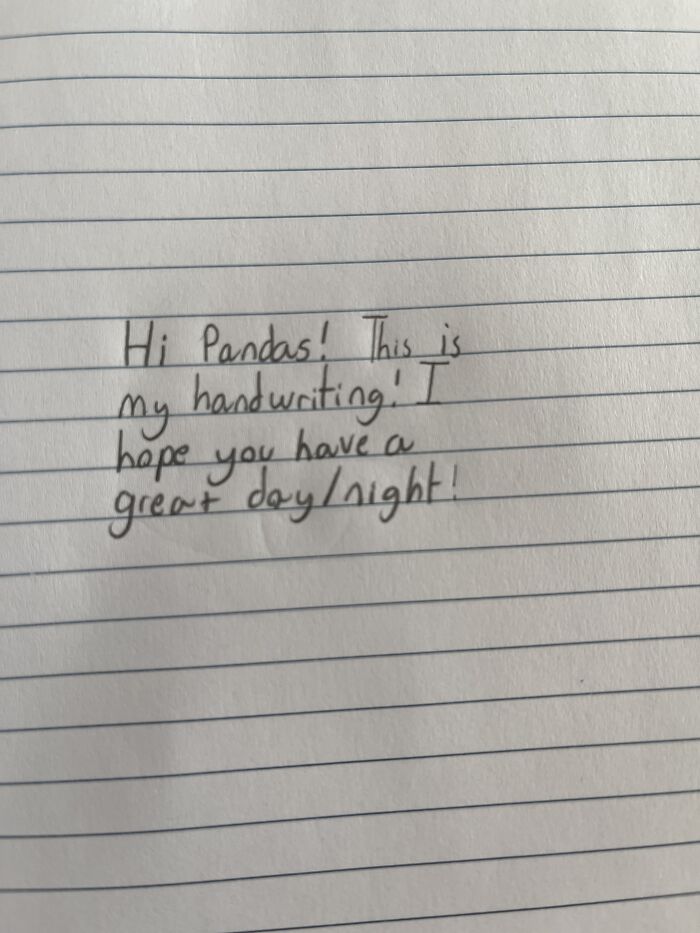 Hi Pandas! This is
my handwriting! I
hope you have a
great day/night!